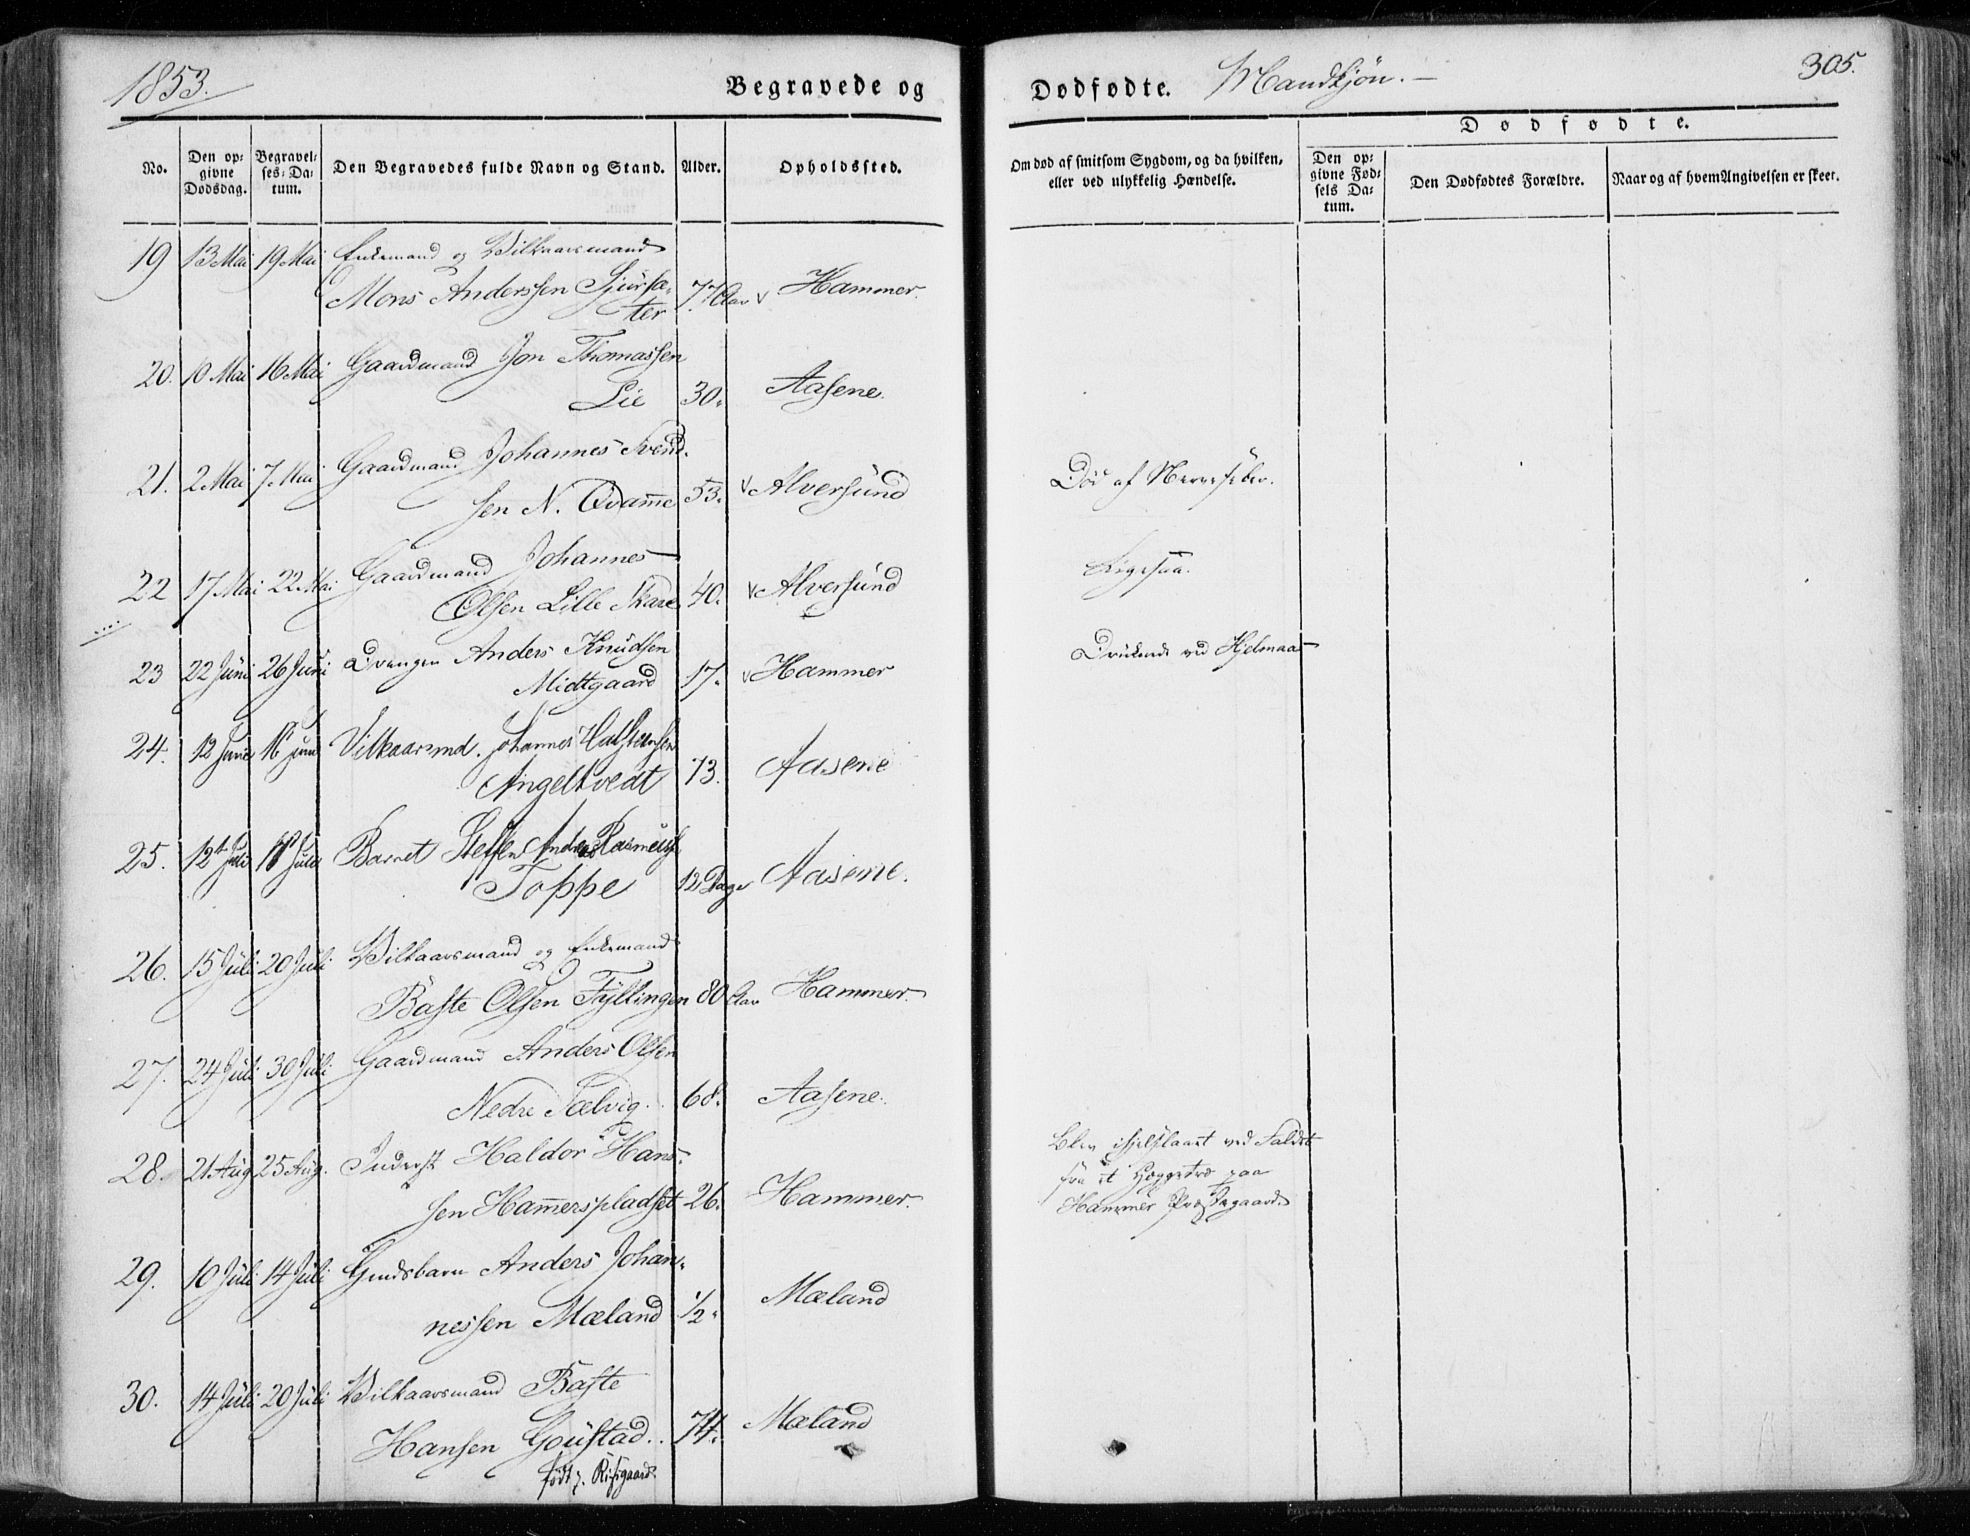 1853.
Begravede og
Dødfødte. Mandkjøn.
305.
No.
Den opgivne Dødsdag.
Begravelses-Datum.
Den Begravedes fulde Navn og Stand.
Alder.
Opholdssted.
Om død af smitsom Sygdom, og da hvilken,
eller ved ulykkelig Hændelse.
Dødfødte.
Den opgivne Fødsels Datum.
Den Dødfødtes Forældre.
Naar og af hvem Angivelsen er skeet.
19 13 Mai 19 Mai Enkemand og Vilkaarsmand
Mons Anderssen Sjursæ-
ter 77 Aar Hammer.
20. 10 Mai 16 Mai Gaardmand Jon Thomassen
Lie 30. Aasene.
21. 2 Mai 7 Mai Gaardmand Johannes Svend-
sen N. Qvamme 53. Alversund Død af Nervefeber.
22 17 Mai 22 Mai Gaardmand Johannes
Olsen Lille Skare 40. Alversund Ligesaa.
23 22 Juni 26 Juni Drengen Anders Knudsen
Midtgaard 17. Hammer Druknede ved Hjelmaas
24. 12 Juni 16 Juni Vilkaarsmd. Johannes Halsteinsen
Angeltvedt 73. Aasene
25. 12t Juli Juli Barnet Steffen Anders Rasmuss.
Toppe 12 Dage Aasene.
26. 15 Juli 20 Juli Vilkaarsmand og Enkemand
Baste Olsen Fyllingen 80 Aar Hammer.
27. 24 Juli 30 Juli Gaardmand Anders Olsen
Nedre Tælvig. 68. Aasene.
28. 21 Aug 25 Aug. Inderst Haldor Hans-
sen Hammerspladset 26. Hammer.
Blev ihjelslaaet ved Faldet
fra et Heggetræ paa
Hammer Præstegaard.
29. 10 Juli 14 Juli Huusbarn Anders Johan-
nessen Mæland 1/2. Mæland
30. 14 Juli 20 Juli Vilkaarsmand Baste
Hansen Goustad. 74. Mæland
født p. Risgaard.